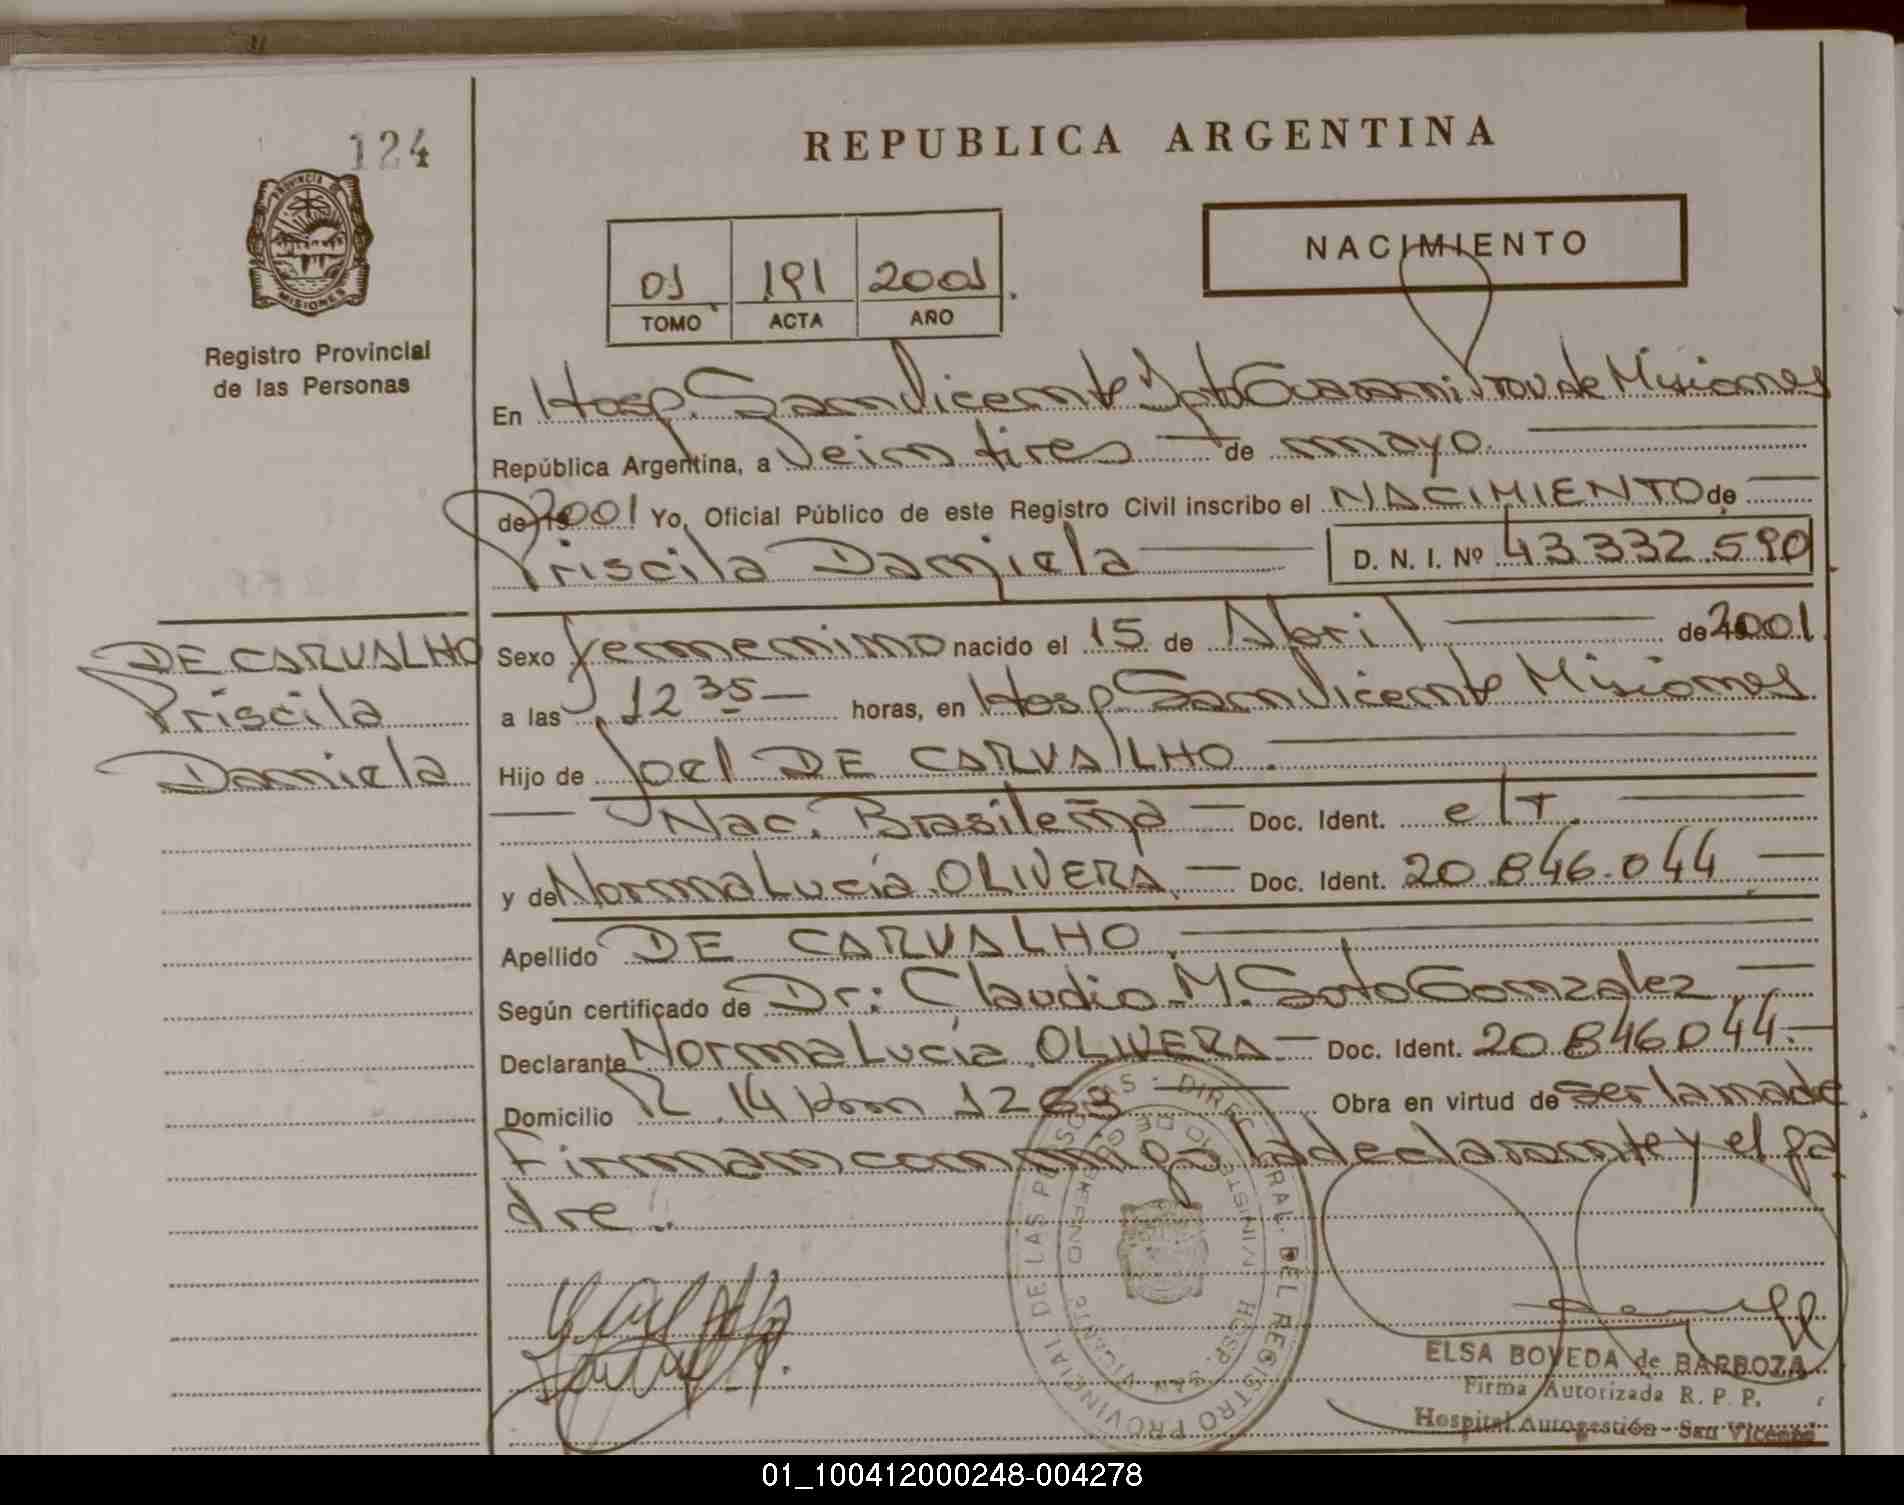 124
REPUBLICA ARGENTINA
PROVINCIA DE
MISIONES
Registro Provincial
de las Personas
01 191 2001
TOMO ACTA AÑO
NACIMIENTO
En Hosp. San Vicente Dpto Guarani Prov de Misiones
República Argentina, a Veintitres de mayo
de 2001 Yo, Oficial Público de este Registro Civil inscribo el NACIMIENTO de
Priscila Daniela D. N. I. Nº 43.332.590
DE CARVALHO
Priscila
Daniela
Sexo femenino nacido el 15 de Abril de 2001
a las 12 35 horas, en Hosp San Vicente Misiones
Hijo de Joel DE CARVALHO.
Nac. Brasileña Doc. Ident. e/t.
y de Norma Lucía OLIVERA Doc. Ident. 20.846.044
Apellido DE CARVALHO
Según certificado de Dr: Claudio M. Soto Gonzalez
Declarante Norma Lucía OLIVERA Doc. Ident. 20846044
Domicilio R. 14 Km 1263 Obra en virtud de ser la madre
Firman conmigo la declarante y el pa
dre.
REGISTRO PROVINCIAL DE LAS PERSONAS
HOSP. SAN VICENTE
ELSA BOVEDA de BARBOZA
Firma Autorizada R. P. P.
Hospital Autogestión - San Vicente
01_100412000248-004278